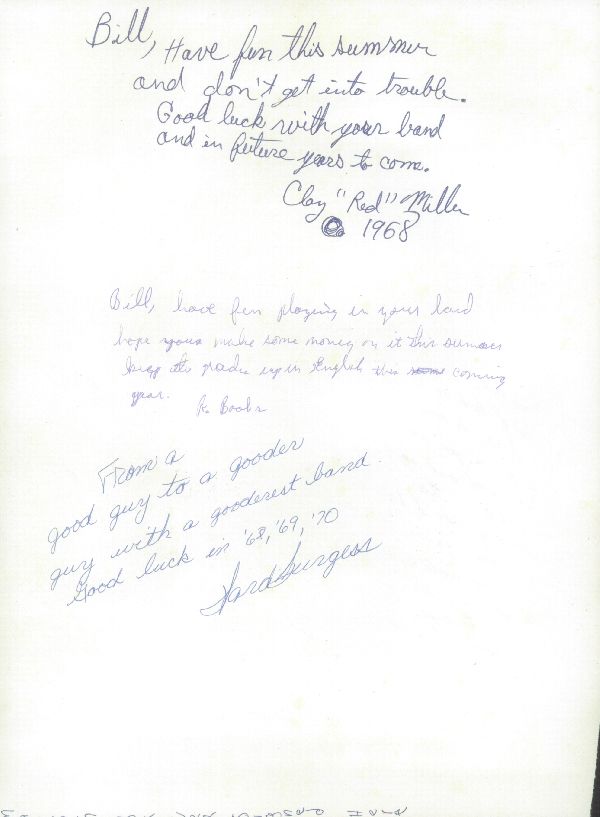 Bill, Have fun this summer
and don't get into trouble.
Good luck with your band
and in future years to come.
Clay "Red" Miller
1968
Bill, have fun playing in your band
hope your make some money on it this summer
keep the grades up in English this coming
year.
From a
good guy to a gooder
guy with a gooderest band.
Good luck in '68, '69, '70
Burgess